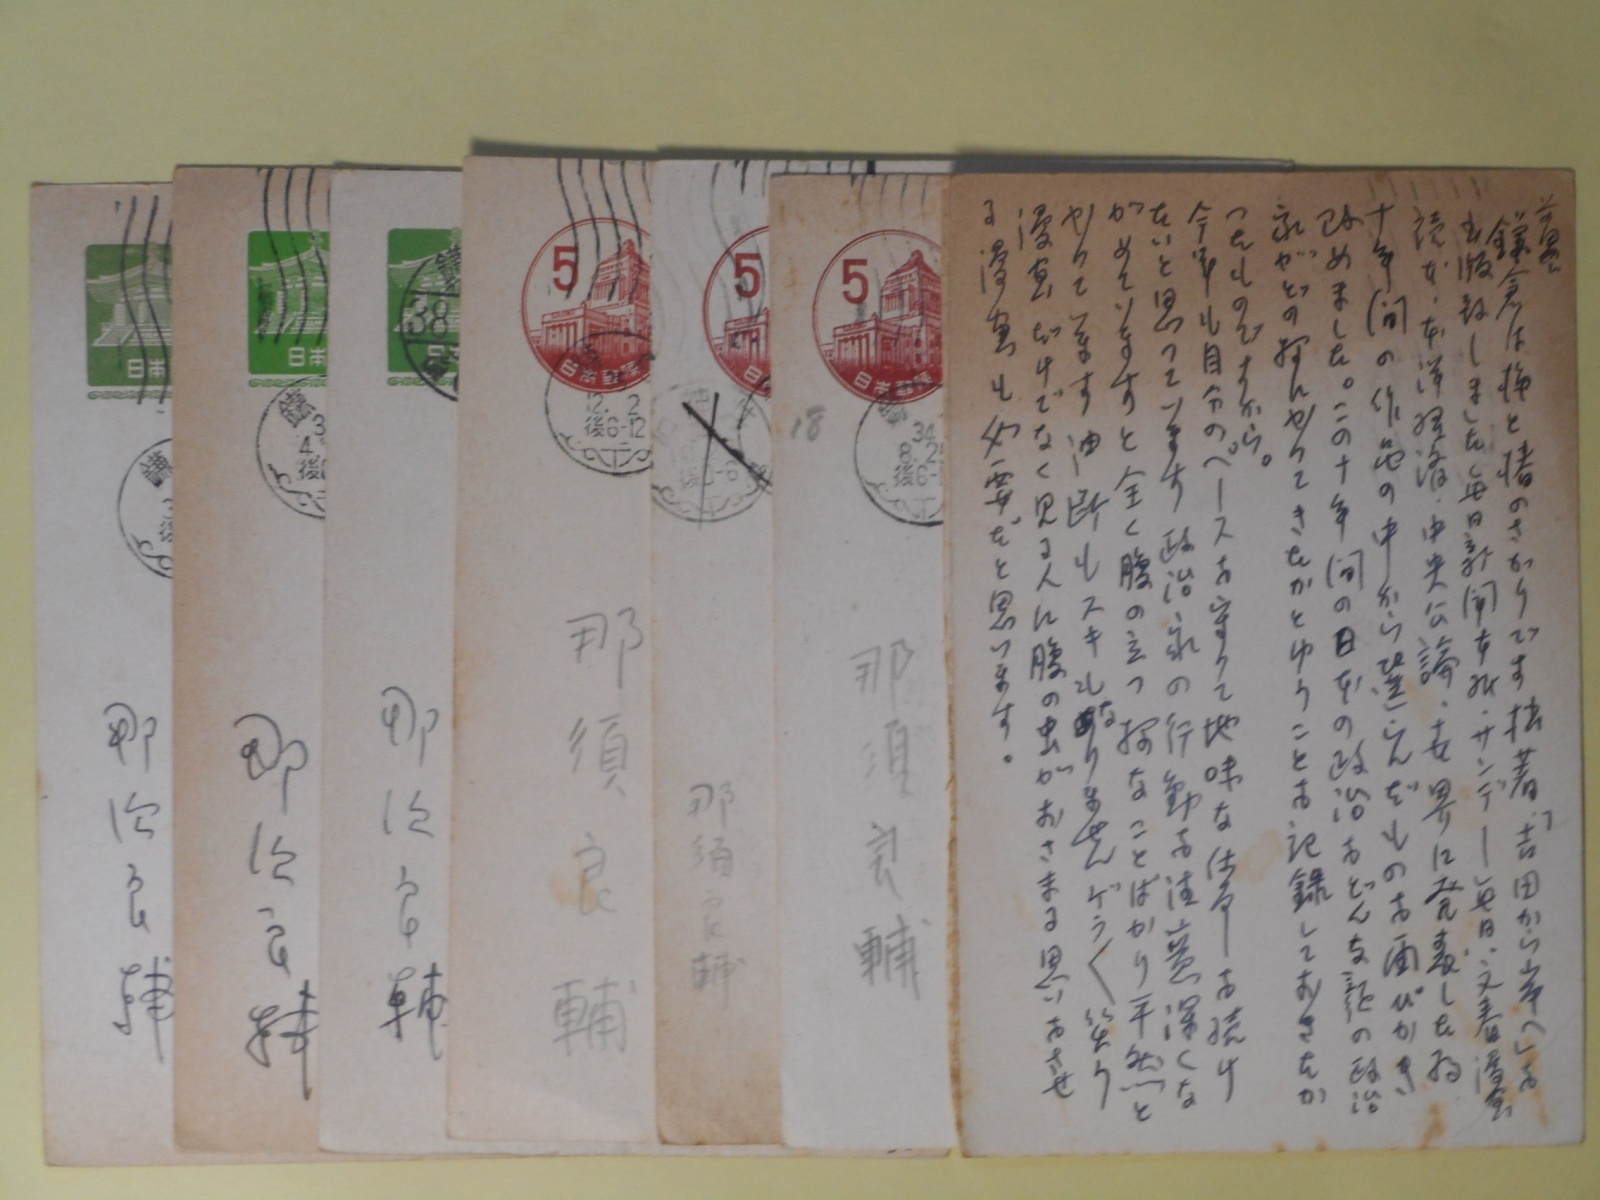 日本
日本
日本
38
5
日本郵便
12. 2
後6-12
5
5
日本郵便
34
8. 25
後6-
18
鎌
鎌
4.
後
那須良輔
那須良輔
那須良輔
那須良輔
那須良輔
那須良輔
前略
鎌倉は梅と椿のさかりです 拙著「吉田から岸へ」を
出版致しました 毎日新聞本紙・サンデー毎日・文春漫画
読本・ 中央公論・ 世界に発表した
十年間の作品の中から選らんだものを画がかき
改めました。この十年間の日本の政治をどんな記の政治
家がどの様にやってきたかとゆうことを記録しておきたか
つたものですから。
今年も自分のペースを守って地味な仕事を続け
たいと思っています 政治家の行動を注意深くな
がめていますと全く腹の立つ様なことばかり平然と
やっています 油断もスキもありません ゲラゲラ笑う
漫画だけでなく見る人に腹の虫がおさまる思いをさせ
る漫画も必要だと思います。